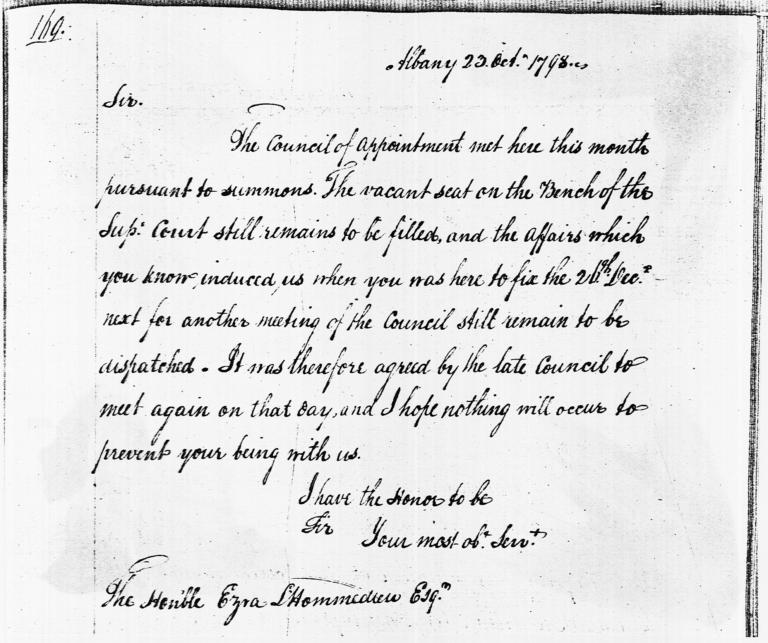 169.
Albany 23. Oct.r 1798.
Sir.
The Council of Appointment met here this month
pursuant to summons. The vacant seat on the Bench of the
Sup.r Court still remains to be filled, and the affairs which
you know, induced, us when you was here to fix the 26th Dec.r
next for another meeting of the Council still remain to be
dispatched. It was therefore agreed by the late Council to
meet again on that day, and I hope nothing will occur to
prevent your being with us.
I have the Honor to be
Sir
Your most ob.t Serv.t
The Honble Ezra L'Hommedieu Esq.r